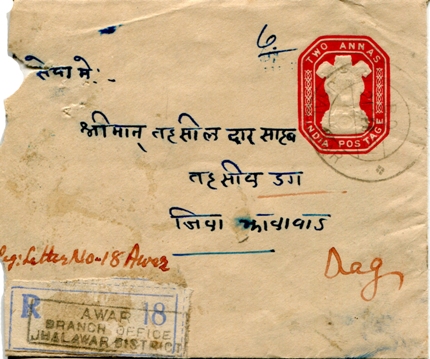 ७.
TWO ANNAS
INDIA POSTAGE
सेवा मे:-
श्रीमान् तहसील दार साहब
तहसील डग
जिला झालावाड
Reg: Letter No-18 Awar
Dag
R AWAR 18
BRANCH OFFICE
JHALAWAR DISTRICT